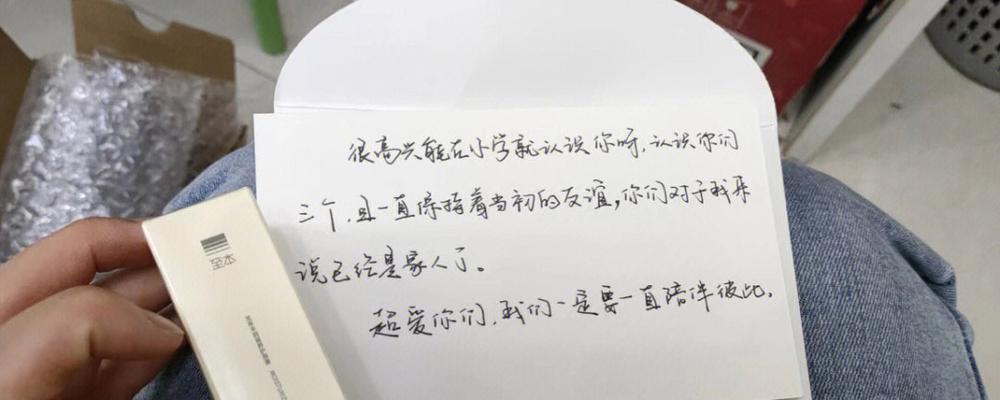 很高兴能在小学就认识你呀，认识你们
三个，且一直保持着当初的友谊，你们对于我来
说已经是家人了。
超爱你们，我们一定要一直陪伴彼此。
至本